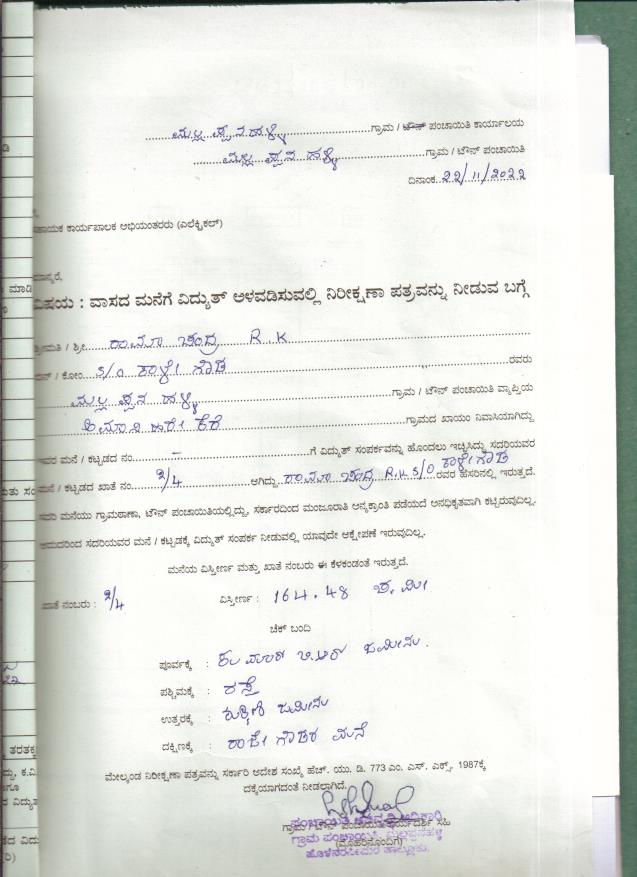 ಮಲ್ಲಪ್ಪನಹಳ್ಳಿ ಗ್ರಾಮ / ಟೌನ್ ಪಂಚಾಯಿತಿ ಕಾರ್ಯಾಲಯ
ಮಲ್ಲಪ್ಪನಹಳ್ಳಿ ಗ್ರಾಮ / ಟೌನ್ ಪಂಚಾಯಿತಿ
ದಿನಾಂಕ 22/11/2022
ಕಾರ್ಯಪಾಲಕ ಅಭಿಯಂತರರು (ಎಲೆಕ್ಟ್ರಿಕಲ್)
ವಿಷಯ : ವಾಸದ ಮನೆಗೆ ವಿದ್ಯುತ್ ಅಳವಡಿಸುವಲ್ಲಿ ನಿರೀಕ್ಷಣಾ ಪತ್ರವನ್ನು ನೀಡುವ ಬಗ್ಗೆ
ಶ್ರೀಮತಿ / ಶ್ರೀ ರಾಮಾ ಚಂದ್ರ R.K
/ ಕೋಂ S/O ಕಾಳೇಗೌಡ ರವರು
ಮಲ್ಲಪ್ಪನಹಳ್ಳಿ ಗ್ರಾಮ / ಟೌನ್ ಪಂಚಾಯಿತಿ ವ್ಯಾಪ್ತಿಯ
ಕೆರೆ ಗ್ರಾಮದ ಖಾಯಂ ನಿವಾಸಿಯಾಗಿದ್ದು
ಇವರ ಮನೆ / ಕಟ್ಟಡದ ನಂ. – ಗೆ ವಿದ್ಯುತ್ ಸಂಪರ್ಕವನ್ನು ಹೊಂದಲು ಇಚ್ಛಿಸಿದ್ದು ಸದರಿಯವರ
ಮನೆ / ಕಟ್ಟಡದ ಖಾತೆ ನಂ. 2/4 ಆಗಿದ್ದು ರಾಮಾ ಚಂದ್ರ R.K S/O ಕಾಳೇಗೌಡ ರವರ ಹೆಸರಿನಲ್ಲಿ ಇರುತ್ತದೆ.
ಮನೆಯು ಗ್ರಾಮಠಾಣಾ, ಟೌನ್ ಪಂಚಾಯಿತಿಯಲ್ಲಿದ್ದು, ಸರ್ಕಾರದಿಂದ ಮಂಜೂರಾತಿ ಅನ್ಯಕ್ರಾಂತಿ ಪಡೆಯದೆ ಅನಧಿಕೃತವಾಗಿ ಕಟ್ಟಿರುವುದಿಲ್ಲ.
ಆದುದರಿಂದ ಸದರಿಯವರ ಮನೆ / ಕಟ್ಟಡಕ್ಕೆ ವಿದ್ಯುತ್ ಸಂಪರ್ಕ ನೀಡುವಲ್ಲಿ ಯಾವುದೇ ಆಕ್ಷೇಪಣೆ ಇರುವುದಿಲ್ಲ.
ಮನೆಯ ವಿಸ್ತೀರ್ಣ ಮತ್ತು ಖಾತೆ ನಂಬರು ಈ ಕೆಳಕಂಡಂತೆ ಇರುತ್ತದೆ.
ಖಾತೆ ನಂಬರು : 2/4 ವಿಸ್ತೀರ್ಣ : 164.48 ಚ.ಮೀ
ಚೆಕ್ ಬಂದಿ
ಪೂರ್ವಕ್ಕೆ : ಜಮೀನು.
ಪಶ್ಚಿಮಕ್ಕೆ : ರಸ್ತೆ
ಉತ್ತರಕ್ಕೆ : ಜಮೀನು
ದಕ್ಷಿಣಕ್ಕೆ : ರಾಜೇಗೌಡರ ಮನೆ
ಮೇಲ್ಕಂಡ ನಿರೀಕ್ಷಣಾ ಪತ್ರವನ್ನು ಸರ್ಕಾರಿ ಆದೇಶ ಸಂಖ್ಯೆ ಹೆಚ್. ಯು. ಡಿ. 773 ಎಂ. ಎಸ್. ಎಕ್ಸ್. 1987ಕ್ಕೆ
ದಕ್ಕೆಯಾಗದಂತೆ ನೀಡಲಾಗಿದೆ.
ಪಂಚಾಯಿತಿ ಅಭಿವೃದ್ಧಿ ಅಧಿಕಾರಿ
ಗ್ರಾಮ / ಟೌನ್ ಪಂಚಾಯಿತಿ ಕಾರ್ಯದರ್ಶಿ ಸಹಿ
ಗ್ರಾಮ ಪಂಚಾಯಿತಿ, ಮಲ್ಲಪ್ಪನಹಳ್ಳಿ
(ಮೊಹರಿನೊಂದಿಗೆ)
ಹೊಳೆನರಸೀಪುರ ತಾಲ್ಲೂಕು.